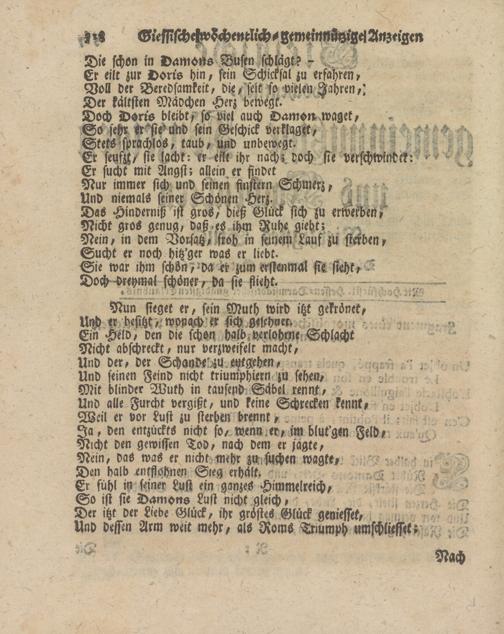 218 Giessische wöchentlich-gemeinnützige Anzeigen
Die schon in Damons Busen schlägt? –
Er eilt zur Doris hin, sein Schicksal zu erfahren,
Voll der Beredsamkeit, die, seit so vielen Jahren,
Der kältsten Mädchen Herz bewegt.
Doch Doris bleibt, so viel auch Damon waget,
So sehr er sie und sein Geschick verklaget,
Stets sprachlos, taub, und unbewegt.
Er seufzt, sie lacht: er eilt ihr nach; doch sie verschwindet:
Er sucht mit Angst; allein er findet
Nur immer sich und seinen finstern Schmerz,
Und niemals seiner Schönen Herz.
Das Hinderniß ist gros, dieß Glück sich zu erwerben,
Nicht gros genug, daß es ihm Ruhe giebt;
Nein, in dem Vorsatz, froh in seinem Lauf zu sterben,
Sucht er noch hitz'ger was er liebt.
Sie war ihm schön, da er zum erstenmal sie sieht,
Doch dreymal schöner, da sie flieht.
Nun sieget er, sein Muth wird itzt gekrönet,
Und er besitzt, wonach er sich gesehnet.
Ein Held, den die schon halb verlohrne Schlacht
Nicht abschreckt, nur verzweifelt macht,
Und der, der Schande zu entgehen,
Und seinen Feind nicht triumphiern zu sehen,
Mit blinder Wuth in tausend Säbel rennt,
Und alle Furcht vergißt, und keine Schrecken kennt,
Weil er vor Lust zu sterben brennt,
Ja, den entzückts nicht so, wenn er, im blut'gen Feld,
Nicht den gewissen Tod, nach dem er jagte,
Nein, das was er nicht mehr zu suchen wagte,
Den halb entflohnen Sieg erhält.
Er fühl in seiner Lust ein ganzes Himmelreich,
So ist sie Damons Lust nicht gleich,
Der itzt der Liebe Glück, ihr gröstes Glück geniesset,
Und dessen Arm weit mehr, als Roms Triumph umschliesset.
Nach